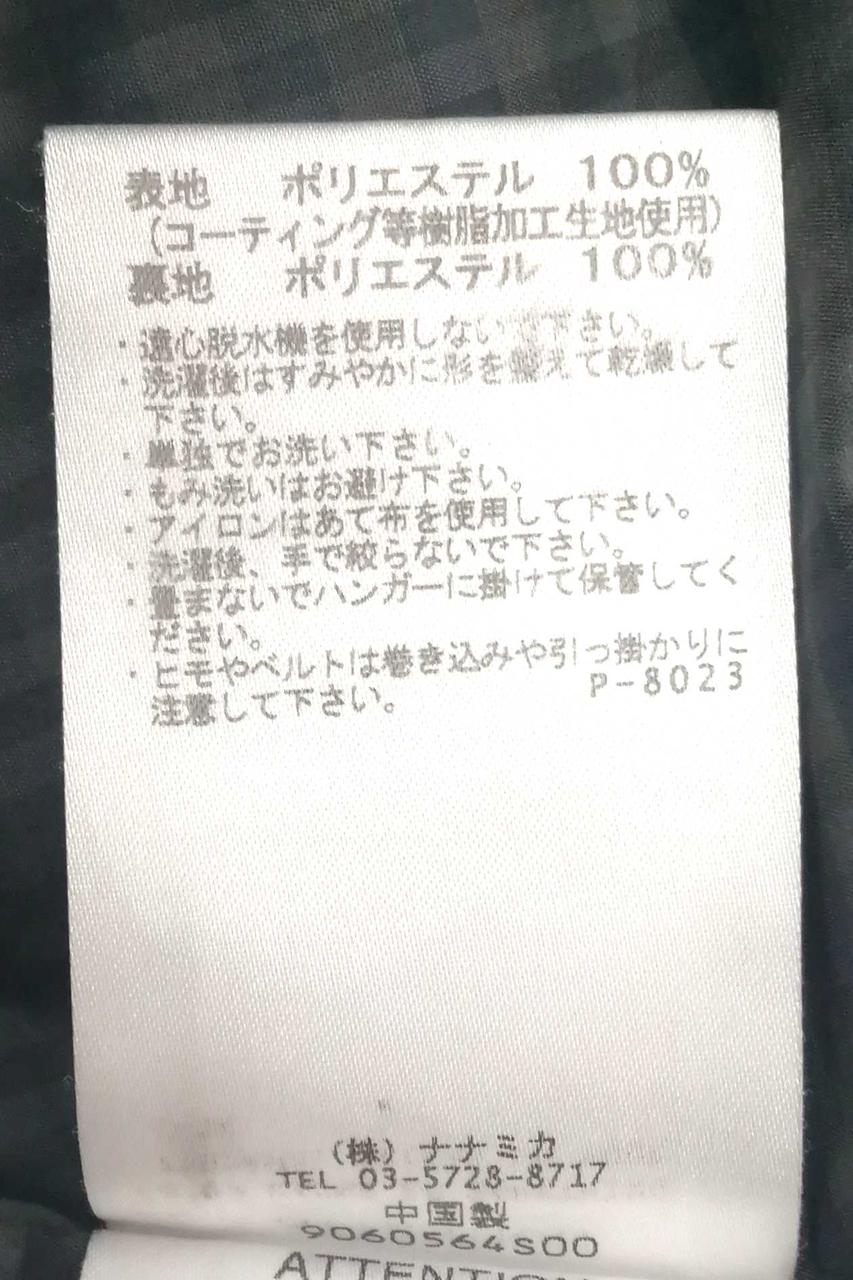 表地　ポリエステル　100%
(コーティング等樹脂加工生地使用)
裏地　ポリエステル　100%
・遠心脱水機を使用しないで下さい。
・洗濯後はすみやかに形を整えて乾燥して
下さい。
・単独でお洗い下さい。
・もみ洗いはお避け下さい。
・アイロンはあて布を使用して下さい。
・洗濯後、手で絞らないで下さい。
・畳まないでハンガーに掛けて保管してく
ださい。
・ヒモやベルトは巻き込みや引っ掛かりに
注意して下さい。
P-8023
(株)ナナミカ
TEL 03-5728-8717
中国製
9060564S00
ATTENTION